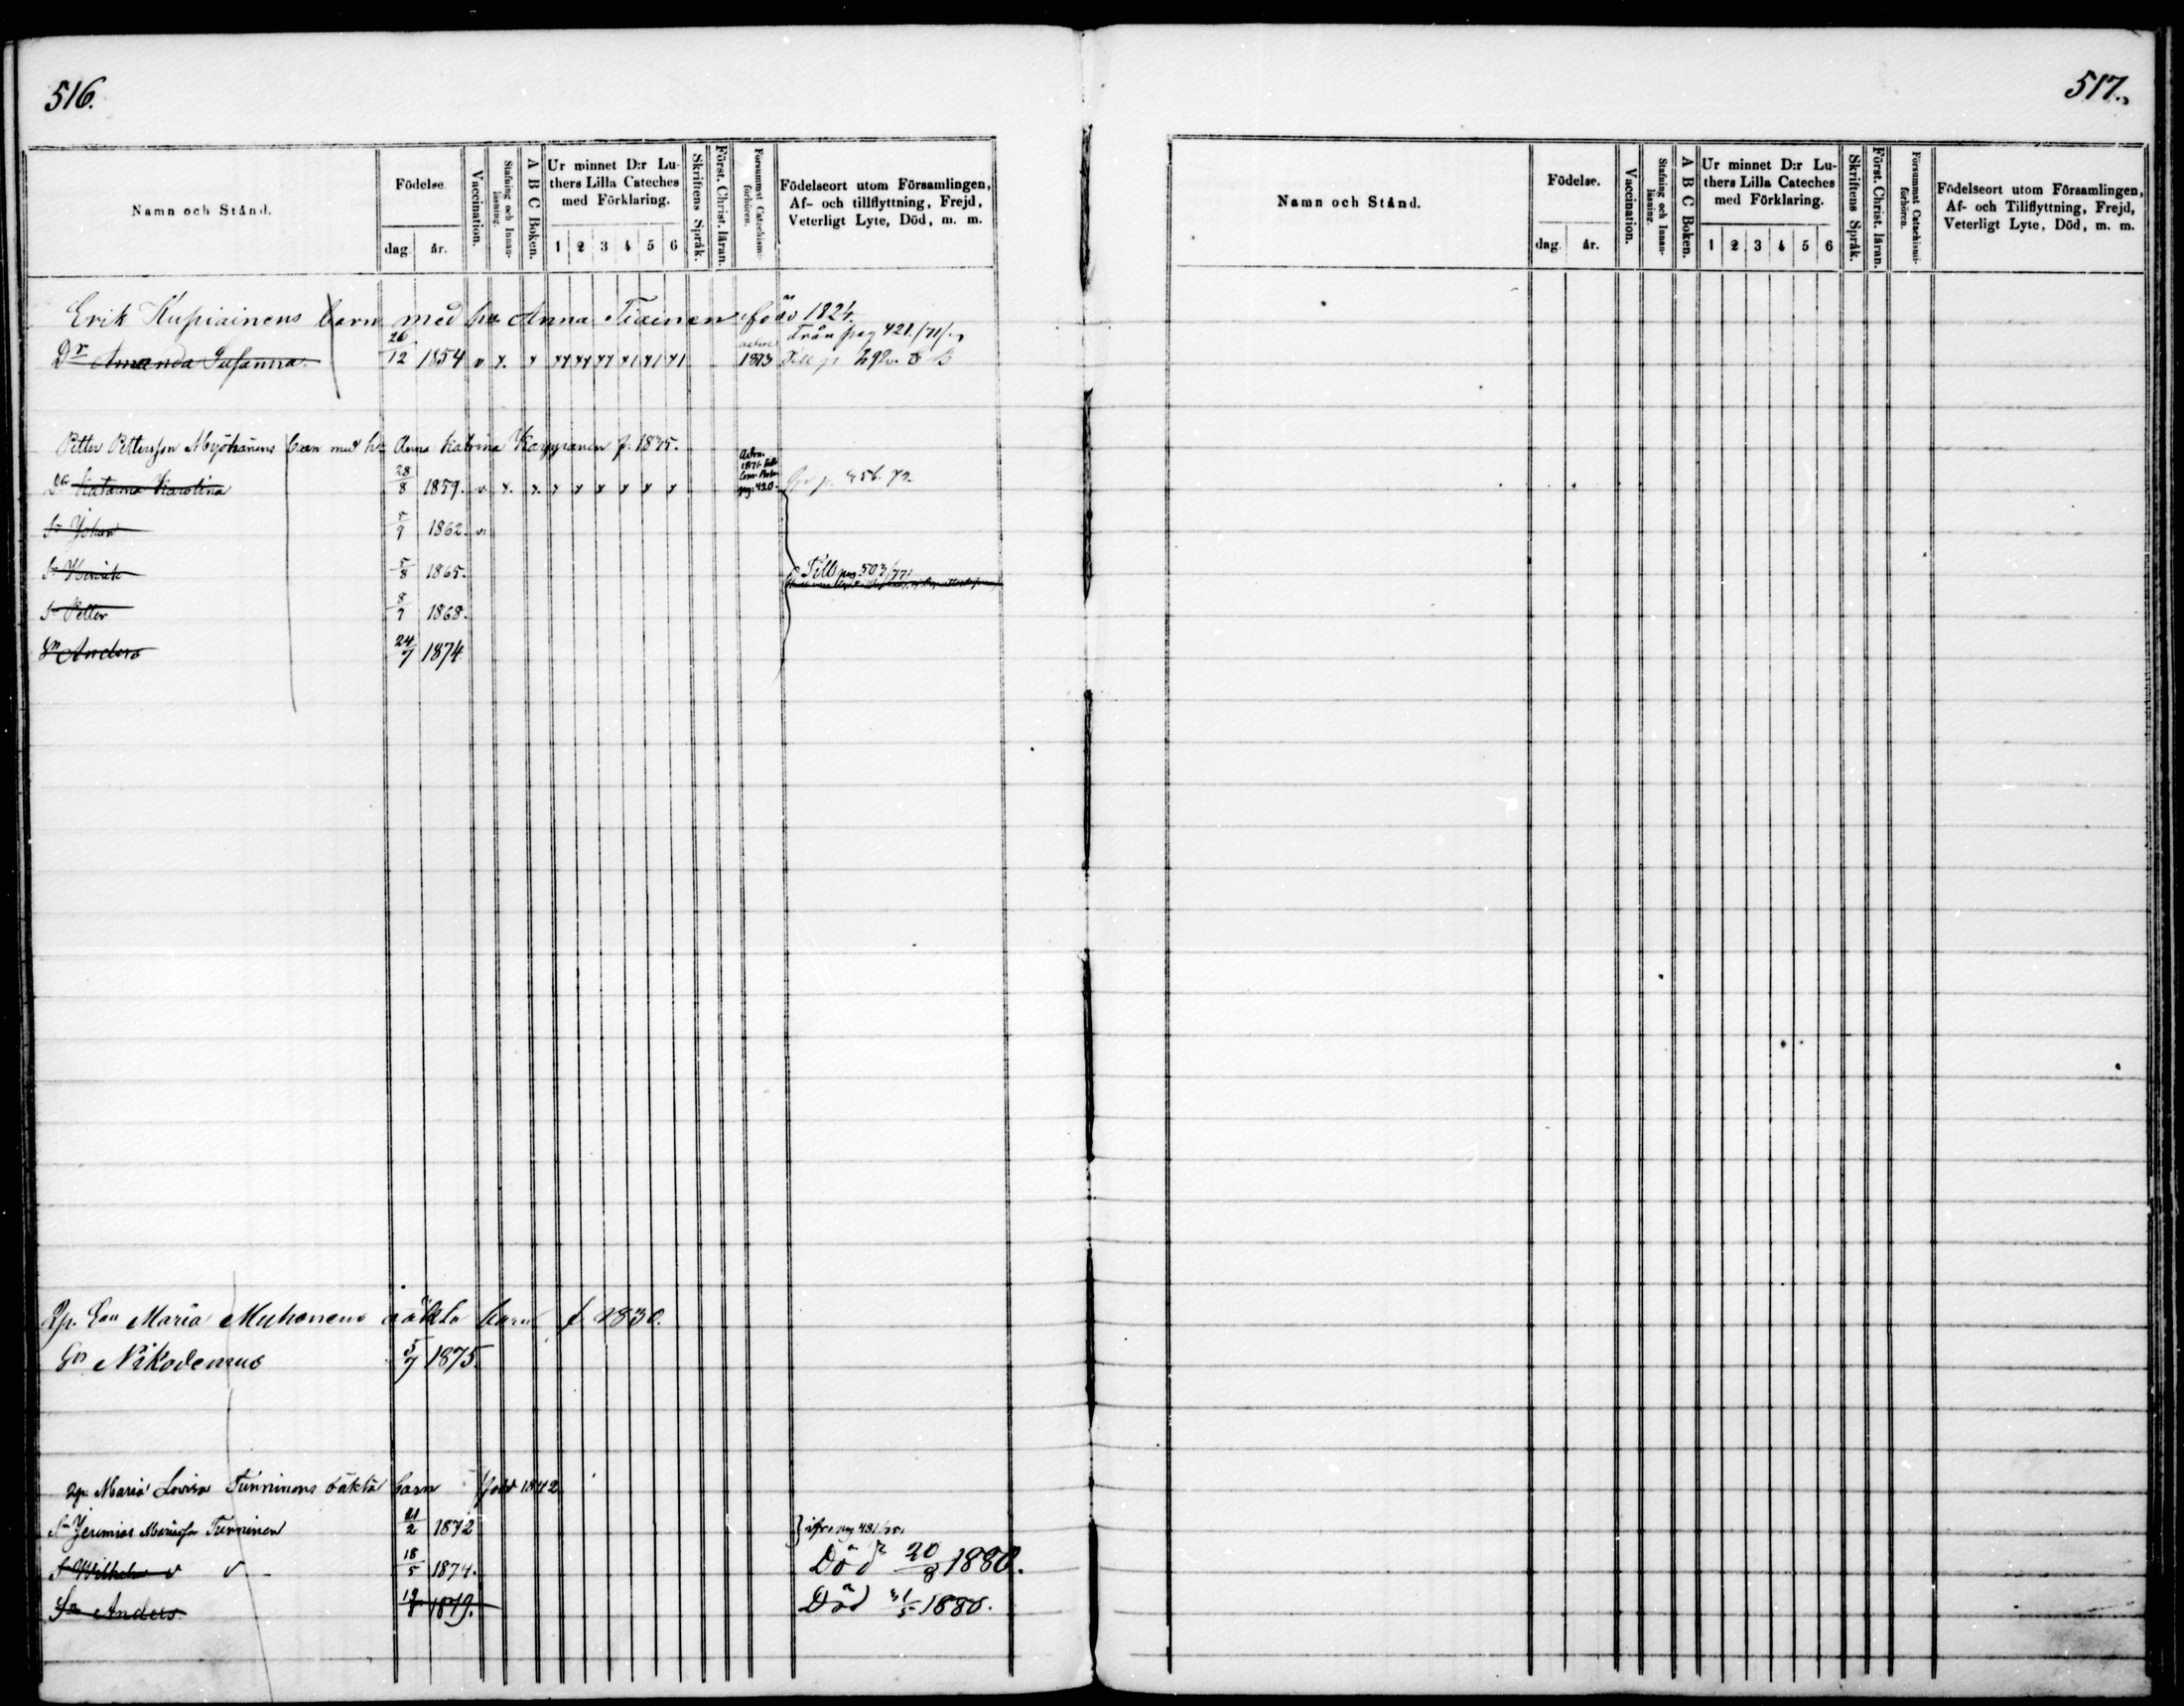 516.
Namn och Stånd.
Födelse.
dag
år.
Vaccination.
Stafning och Innanläsning.
A B C Boken.
Ur minnet D:r Luthers Lilla Cateches med Förklaring.
1 2 3 4 5 6
Skriftens Språk.
Först. Christ. läran.
Försummat Catechismiförhören.
Födelseort utom Församlingen,
Af- och tillflyttning, Frejd,
Veterligt Lyte, Död, m. m.
Erik Kupiainens barn med hu Anna Tiainen född 1824.
Från pag 421./71/.
Dr Amanda Susanna. 26/12 1854 v x. x 1873 Till p 292.
Petter Pettersson Myöhänens barn med h. Anna Katrina Karppanen f. 1835.
Dr Katarina Karolina 28/8 1859. v x. x. x x x x x x 1871 pag. 420. p. 456.
Sn Johan 5/9 1862. v
Sn Henrik 5/8 1865. Till pag 503/77
Sn Petter 8/9 1868.
Sn Anders 24/7 1874
Maria Muhonens oäkta barn f 1830.
Sn Nikodemus 5/7 1875
Maria Lovisa Tunninens oäkta barn född 1842
Sn Jeremias Tunninen 21/2 1872 ifr. pag 431/75
Sn Wilhelm v v - 18/5 1874. Död 20/8 1880.
Sn Anders 1879. Död 31/5 1880.
517.
Namn och Stånd.
Födelse.
dag.
år.
Vaccination.
Stafning och Innanläsning.
A B C Boken.
Ur minnet D:r Luthers Lilla Cateches med Förklaring.
1 2 3 4 5 6
Skriftens Språk.
Först. Christ. läran.
Försummat Catechismiförhören.
Födelseort utom Församlingen,
Af- och Tillflyttning, Frejd,
Veterligt Lyte, Död, m. m.